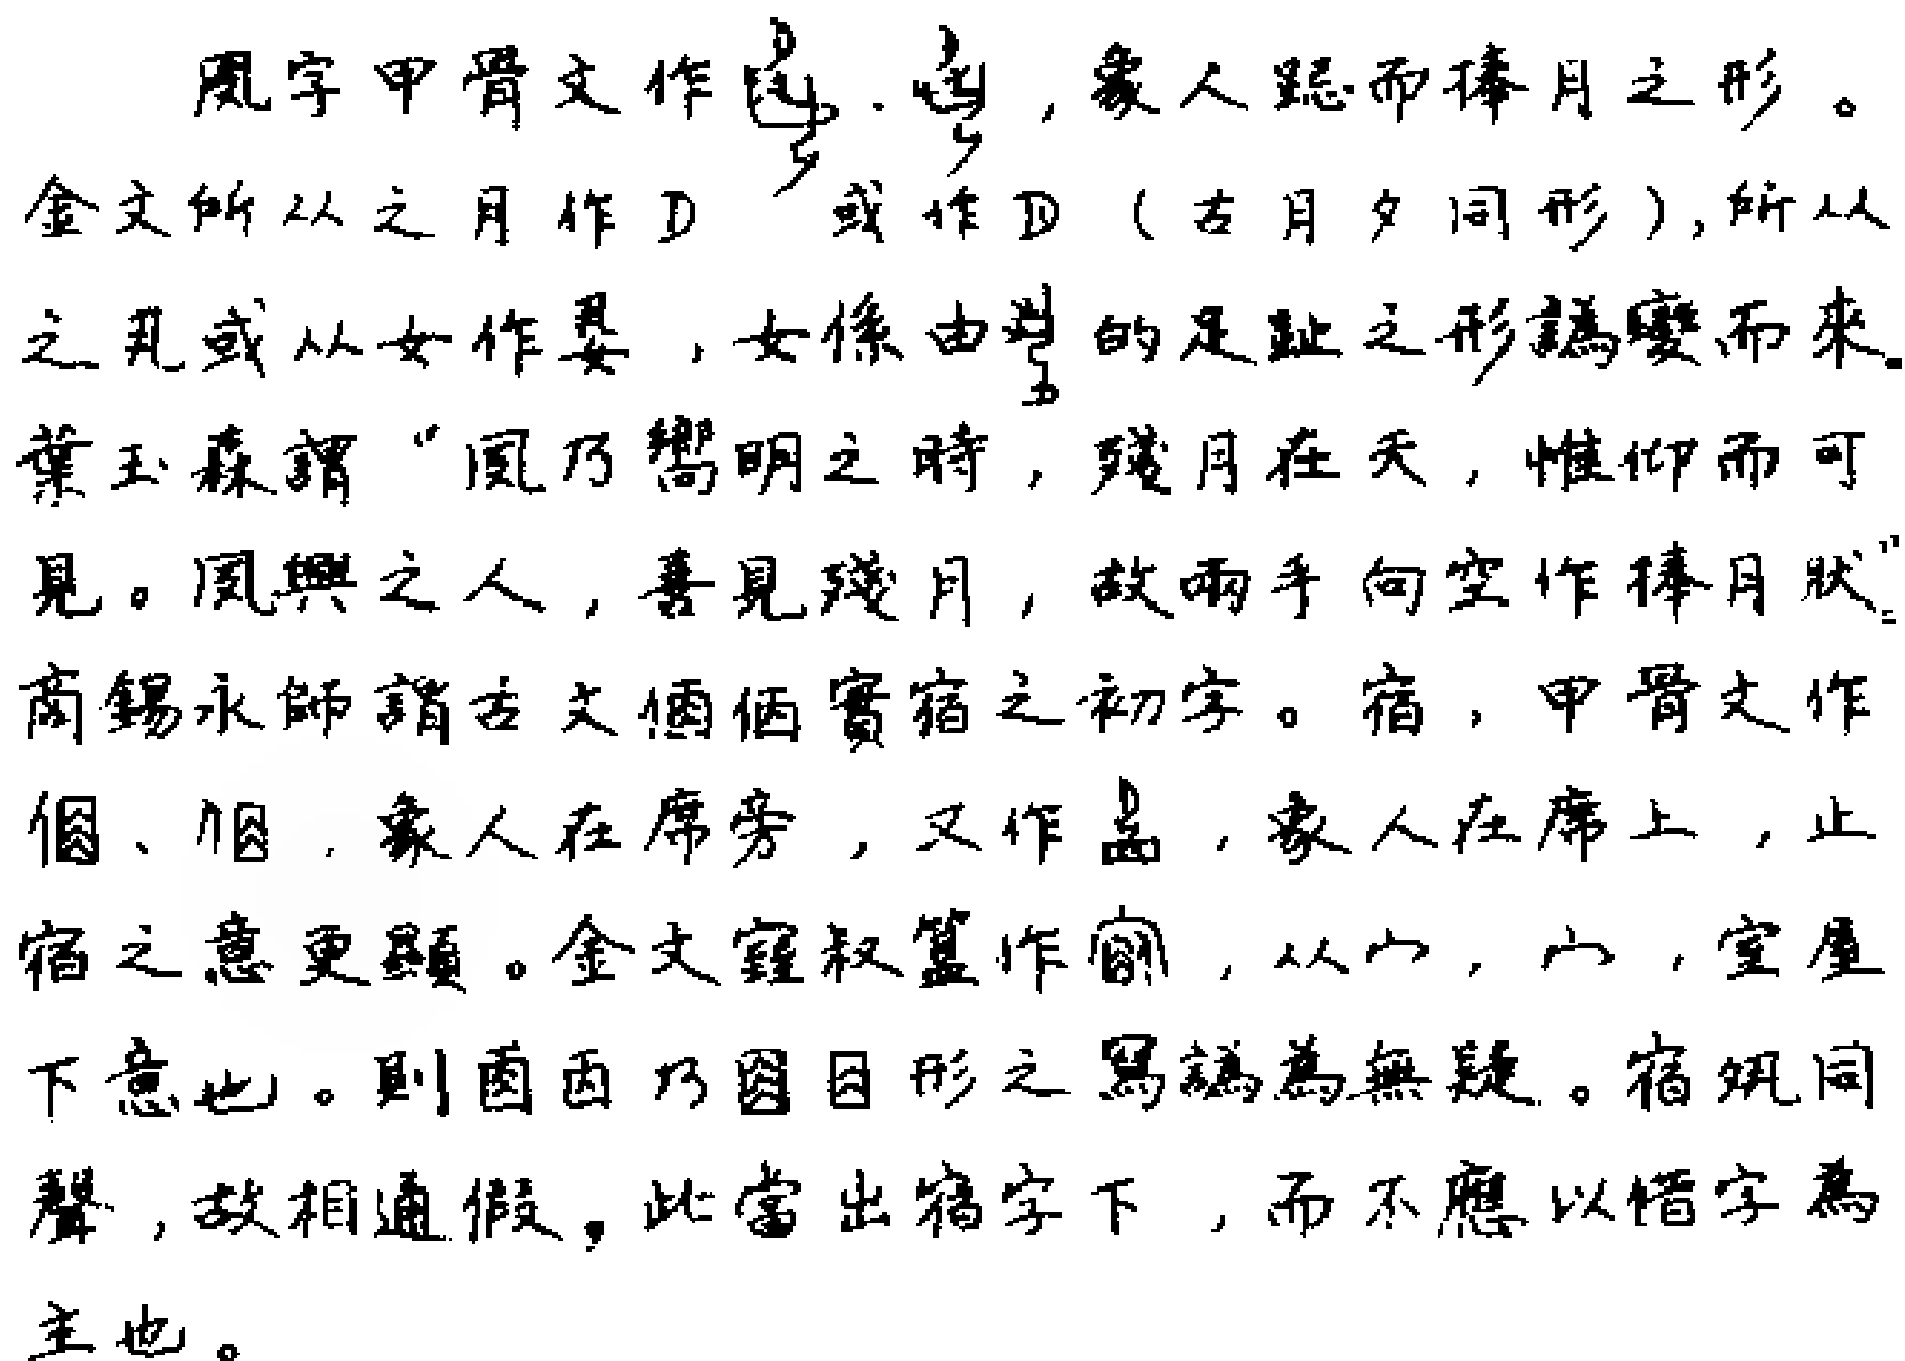 夙字甲骨文作、，象人跽而捧月之形。
金文所从之月作D 或作（古月夕同形），所从
之丮或从女作，女係由的足趾之形譌變而來。
葉玉森謂“夙乃嚮明之時，殘月在天，惟仰而可
見。夙興之人，喜見殘月，故兩手向空作捧月狀”。
商錫永師謂古文㑉佰實宿之初字。宿，甲骨文作
、，象人在席旁，又作，象人在席上，止
宿之意更顯。金文窒叔簋作，从宀，宀，室屋
下意也。則乃形之寫譌為無疑。宿夙同
聲，故相通假，此當出宿字下，而不應以借字為
主也。